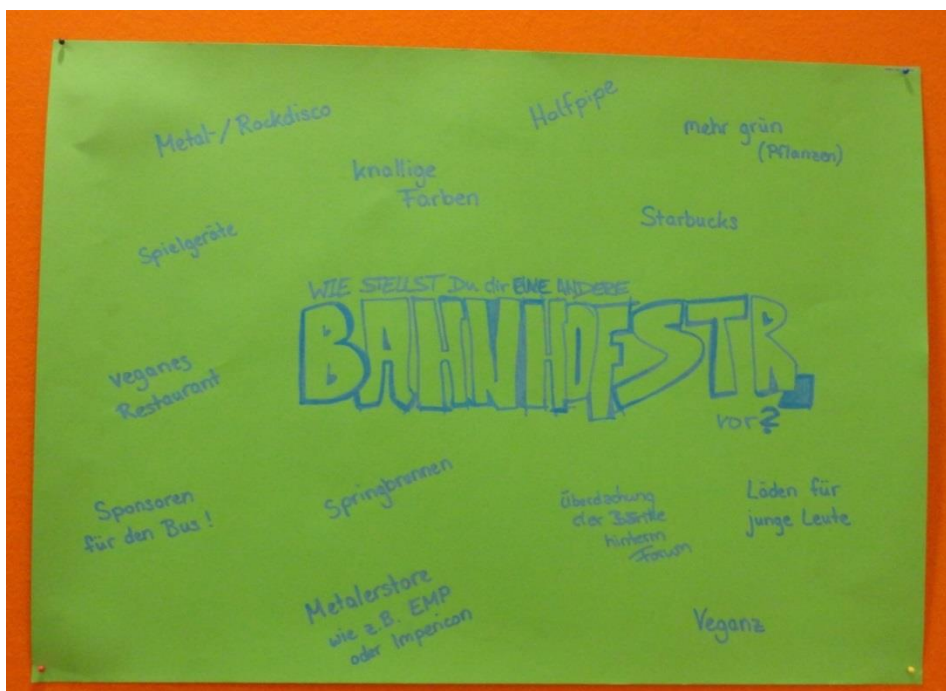 Metal-/Rockdisco
Halfpipe
mehr grün
(Pflanzen)
knallige
Farben
Starbucks
Spielgeräte
WIE STELLST Du dir EINE ANDERE
BAHNHOFSTR.
vor?
veganes
Restaurant
Springbrunnen
Sponsoren
für den Bus!
Überdachung
der Bänke
hinterm
Forum
Läden für
junge Leute
Metalerstore
wie z.B. EMP
oder Impericon
Veganz